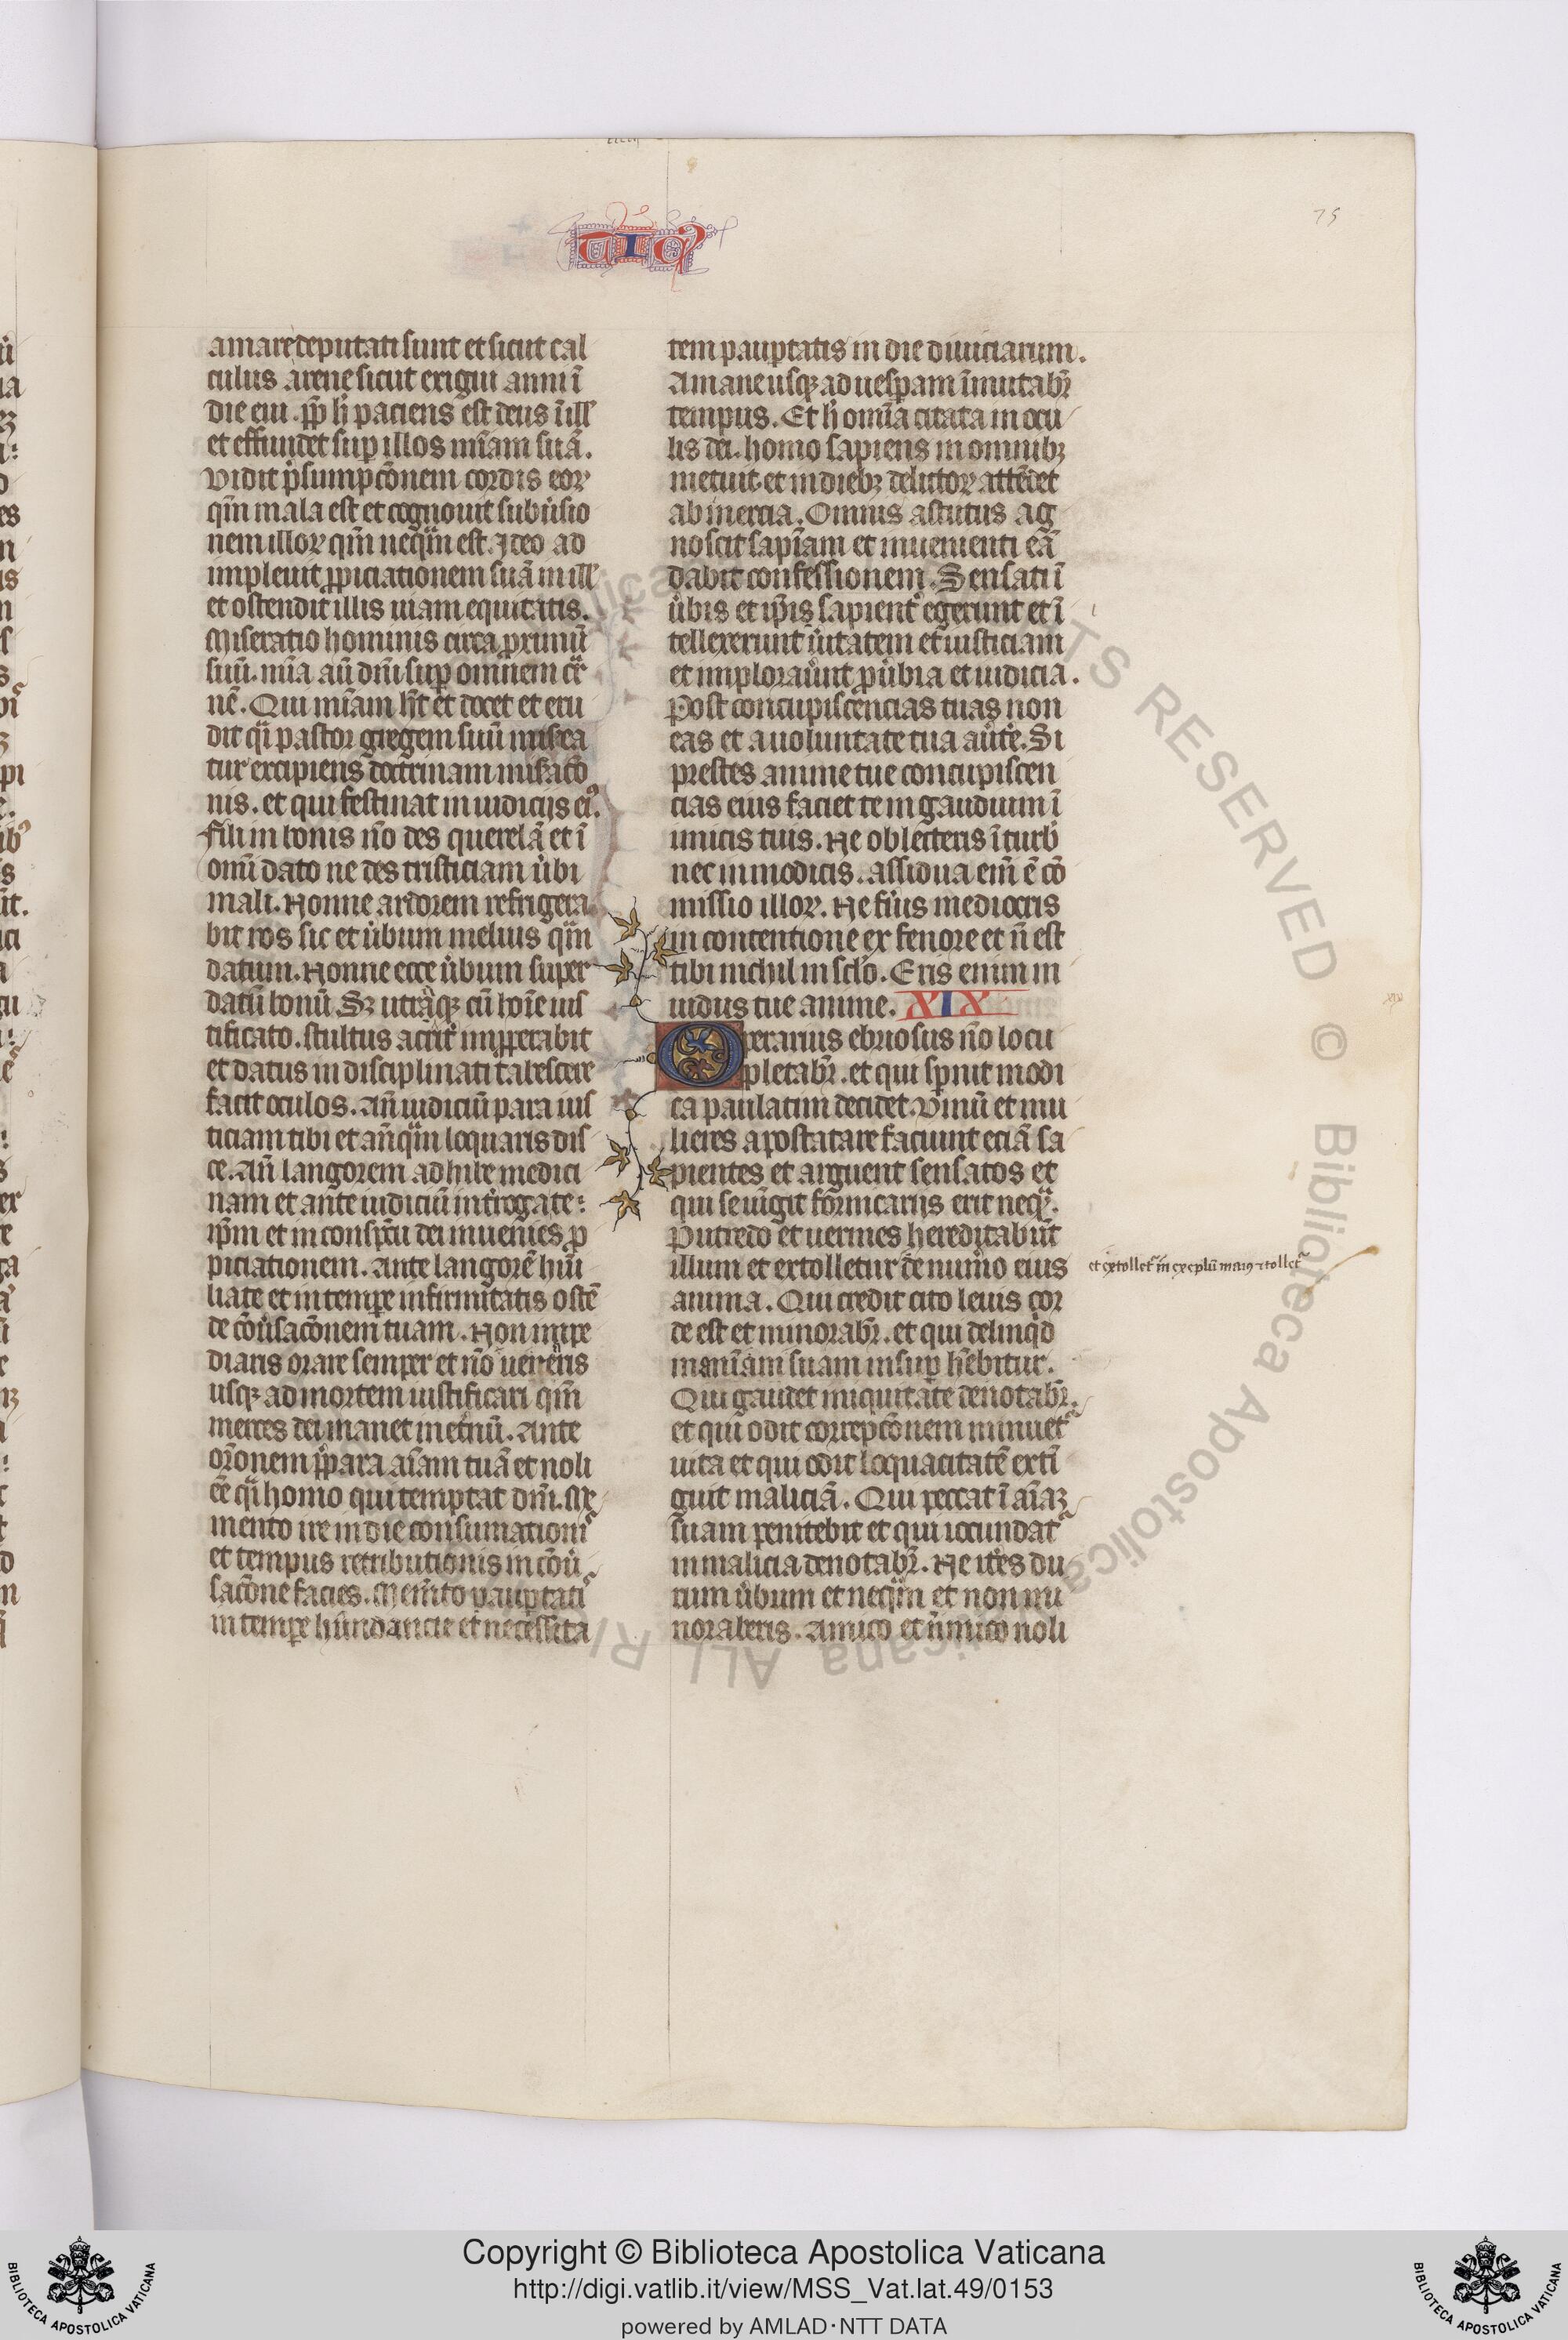 TICꝰ
75
amare deputati sunt et sicut cal
culus arene sicut exigui anni ĩ
die eui. ꝓp̃ h̓ paciens est deus ĩ ill̃
et effundet suꝑ illos mĩam suã.
Vidit p̓sumpcõnem cordis eoꝝ
qm̃ mala est et cognouit subu̓sio
nem illoꝝ qm̃ neqͣm est. Ideo ad
impleuit ꝓpiciationem suã in ill̃
et ostendit illis uiam equitatis.
Miseratio hominis circa proximũ
suũ. mĩa aũ dñi suꝑ omnem cͣr
nẽ. Qui mĩam h̃t et docet et eru
dit qͣi pastor gregem suũ miserea
tur excipiens doctrinam miseracõ
nis. et qui festinat in iudicijs eiꝰ.
Fili in bonis nõ des querelã et ĩ
omĩ dato ne des tristiciam u̓bi
mali. Nonne ardorem refrigera
bit ros sic et u̓bum melius qͣm
datum. Nonne ecce u̓bum super
datũ bonũ. Sꝫ utraqꝫ cũ hoĩe ius
tificato. stultus acrit̓ improperabit
et datus indisciplinati tabescere
facit oculos. Añ iudiciũ para ius
ticiam tibi et añqͣm loquaris dis
ce. Añ langorem adhibe medici
nam et ante iudiciũ int̓roga te:
ip̃m et in conspc̃u dei inuenies ꝓ
piciationem. Ante langorẽ humi
lia te et in tempore infirmitatis ostẽ
de cõu̓sacõnem tuam. Non impe
diaris orare semper et nõ uerẽris
usqꝫ ad mortem iustificari qm̃
merces dei manet in et̓nũ. Ante
or̃onem p̓para aĩam tuã et noli
eẽ qͣi homo qui temptat dm̃. Me
mento ire in die consumationis
et tempus retributionis in cõu̓
sacõne facies. Mem̃to pauꝑtatis
in tempore habundancie et necessita
tem pauꝑtatis in die diuiciarum.
A mane usqꝫ ad uesꝑam ĩmutabr̃
tempus. Et h̓ omĩa citata in ocu
lis dei. homo sapiens in omnibꝫ
metuit. et in diebꝫ delictoꝝ attẽdet
ab inercia. Omnis astutus ag
noscit sapĩam et inuenienti eã
dabit confessionem. Sensati ĩ
u̓bis et ip̃i sapient̓ egerunt et ĩ
tellexerunt u̓itatem et iusticiam
et implorau̓unt ꝓu̓bia et iudicia.
Post concupiscencias tuas non
eas et a uoluntate tua au̓te̓. Si
prestes anime tue concupiscen
cias eius faciet te in gaudium ĩ
imicis tuis. Ne oblecteris ĩ turb̓
nec in modicis. assidua em̃ ẽ cõ
missio illoꝝ. Ne fu̓is mediocris
in contentione ex fenore et ñ est
tibi nichil in scl̃o. Eris enim in
uidus tue anime. XIX
Operarius ebriosus nõ locu
pletabr̃. et qui sp̓nit modi
ca paulatim decidet. Vinũ et mu
lieres apostatare faciunt eciã sa
pientes et arguent sensatos et
qui se iũgit fornicarijs erit neqͣ.
Putredo et uermes hereditabũt
illum et extolletur de nũmo eius
anima. Qui credit cito leuis cor
de est et minorabr̃. et qui delinqͥd
in aniãm suam insuꝑ hẽbitur.
Qui gaudet iniquitate denotabr̃.
et qui odit correpcõnem minuet̃
uita et qui odit loquacitatẽ extĩ
guit maliciã. Qui peccat ĩ aĩaꝫ
suam penitebit et qui iocundat̃
in malicia denotabr̃. Ne it̓es du
rum u̓bum et neqͣm et non mi
noraberis. Amico et ĩnimico noli
et extollet̃ in exẽplũ maiꝰ ⁊ tollet̃
Copyright © Biblioteca Apostolica Vaticana
http://digi.vatlib.it/view/MSS_Vat.lat.49/0153
powered by AMLAD·NTT DATA
BIBLIOTECA APOSTOLICA VATICANA
BIBLIOTECA APOSTOLICA VATICANA
© Biblioteca Apostolica Vaticana ALL RIGHTS RESERVED